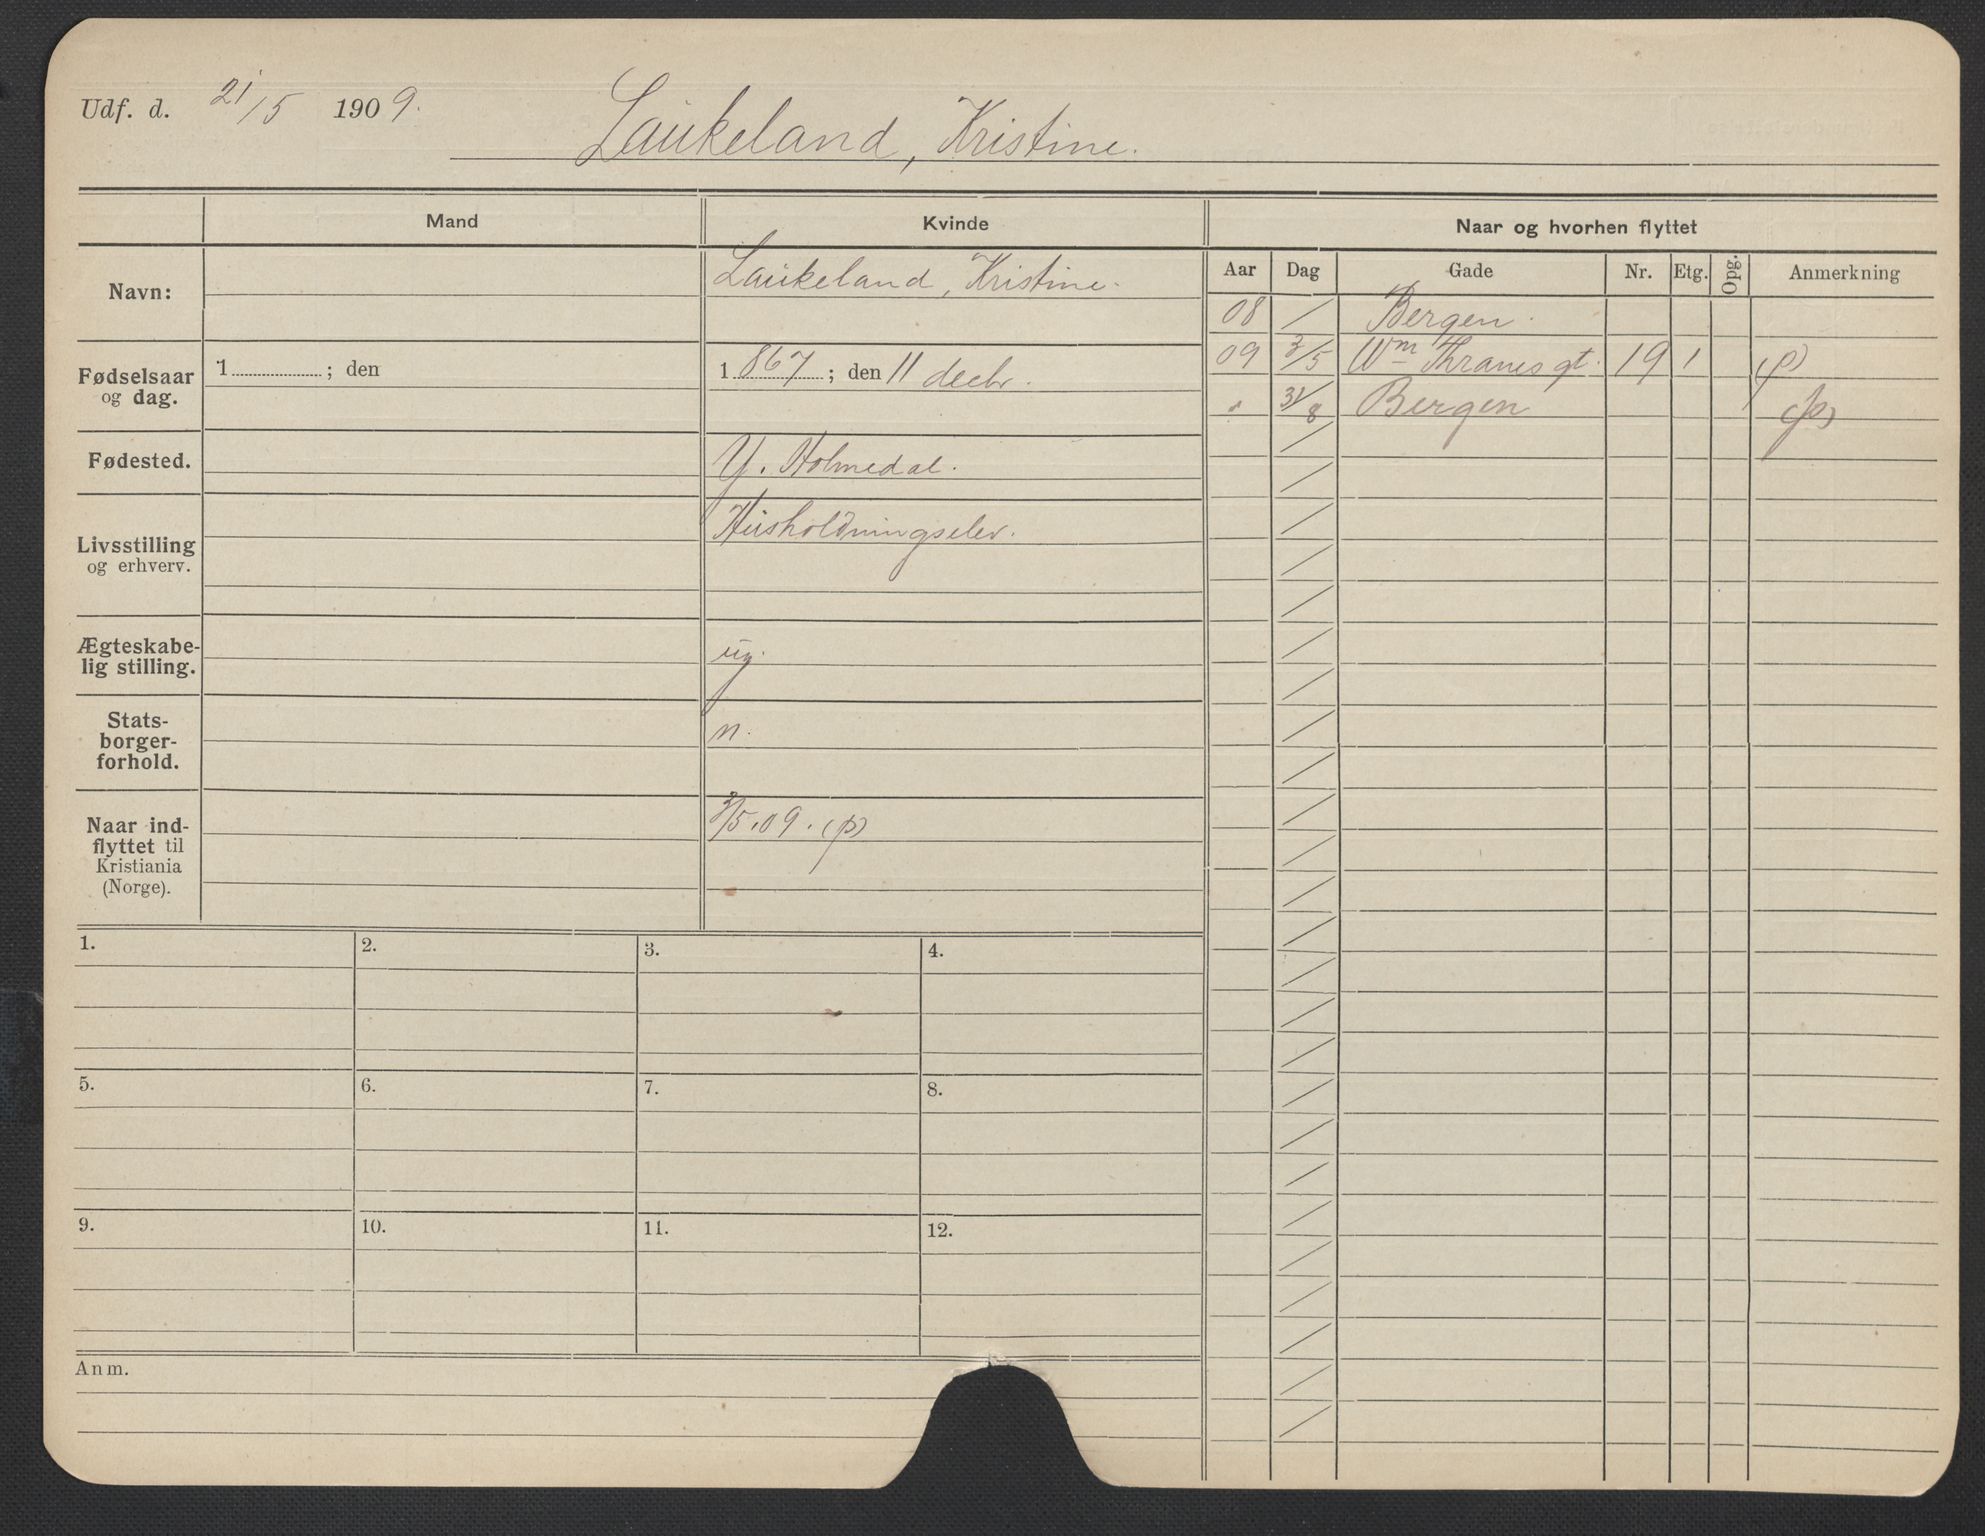 Udf. d. 21/5 1909.
Laukeland, Kristine.
Mand
Kvinde
Naar og hvorhen flyttet
Navn:
Laukeland, Kristine.
Aar Dag Gade Nr. Etg. Opg. Anmerkning
08 / Bergen.
09 3/5 Wm Thranes gt. 19 1 (p)
" 31/8 Bergen (p)
Fødselsaar
og dag.
1 ; den
1867 ; den 11 decbr.
Fødested.
Y. Holmedal.
Livsstilling
og erhverv.
Husholdningselev.
Ægteskabe-
lig stilling.
ug.
Stats-
borger-
forhold.
n.
Naar ind-
flyttet til
Kristiania
(Norge).
3/5.09. (p)
1. 2. 3. 4.
5. 6. 7. 8.
9. 10. 11. 12.
Anm.